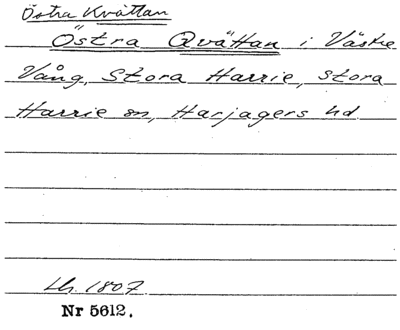 Östra Kvättan
Östra Qvättan i Västre
Vång, Stora Harrie, Stora
Harrie sn, Harjagers hd.
Lh. 1807.
Nr 5612.